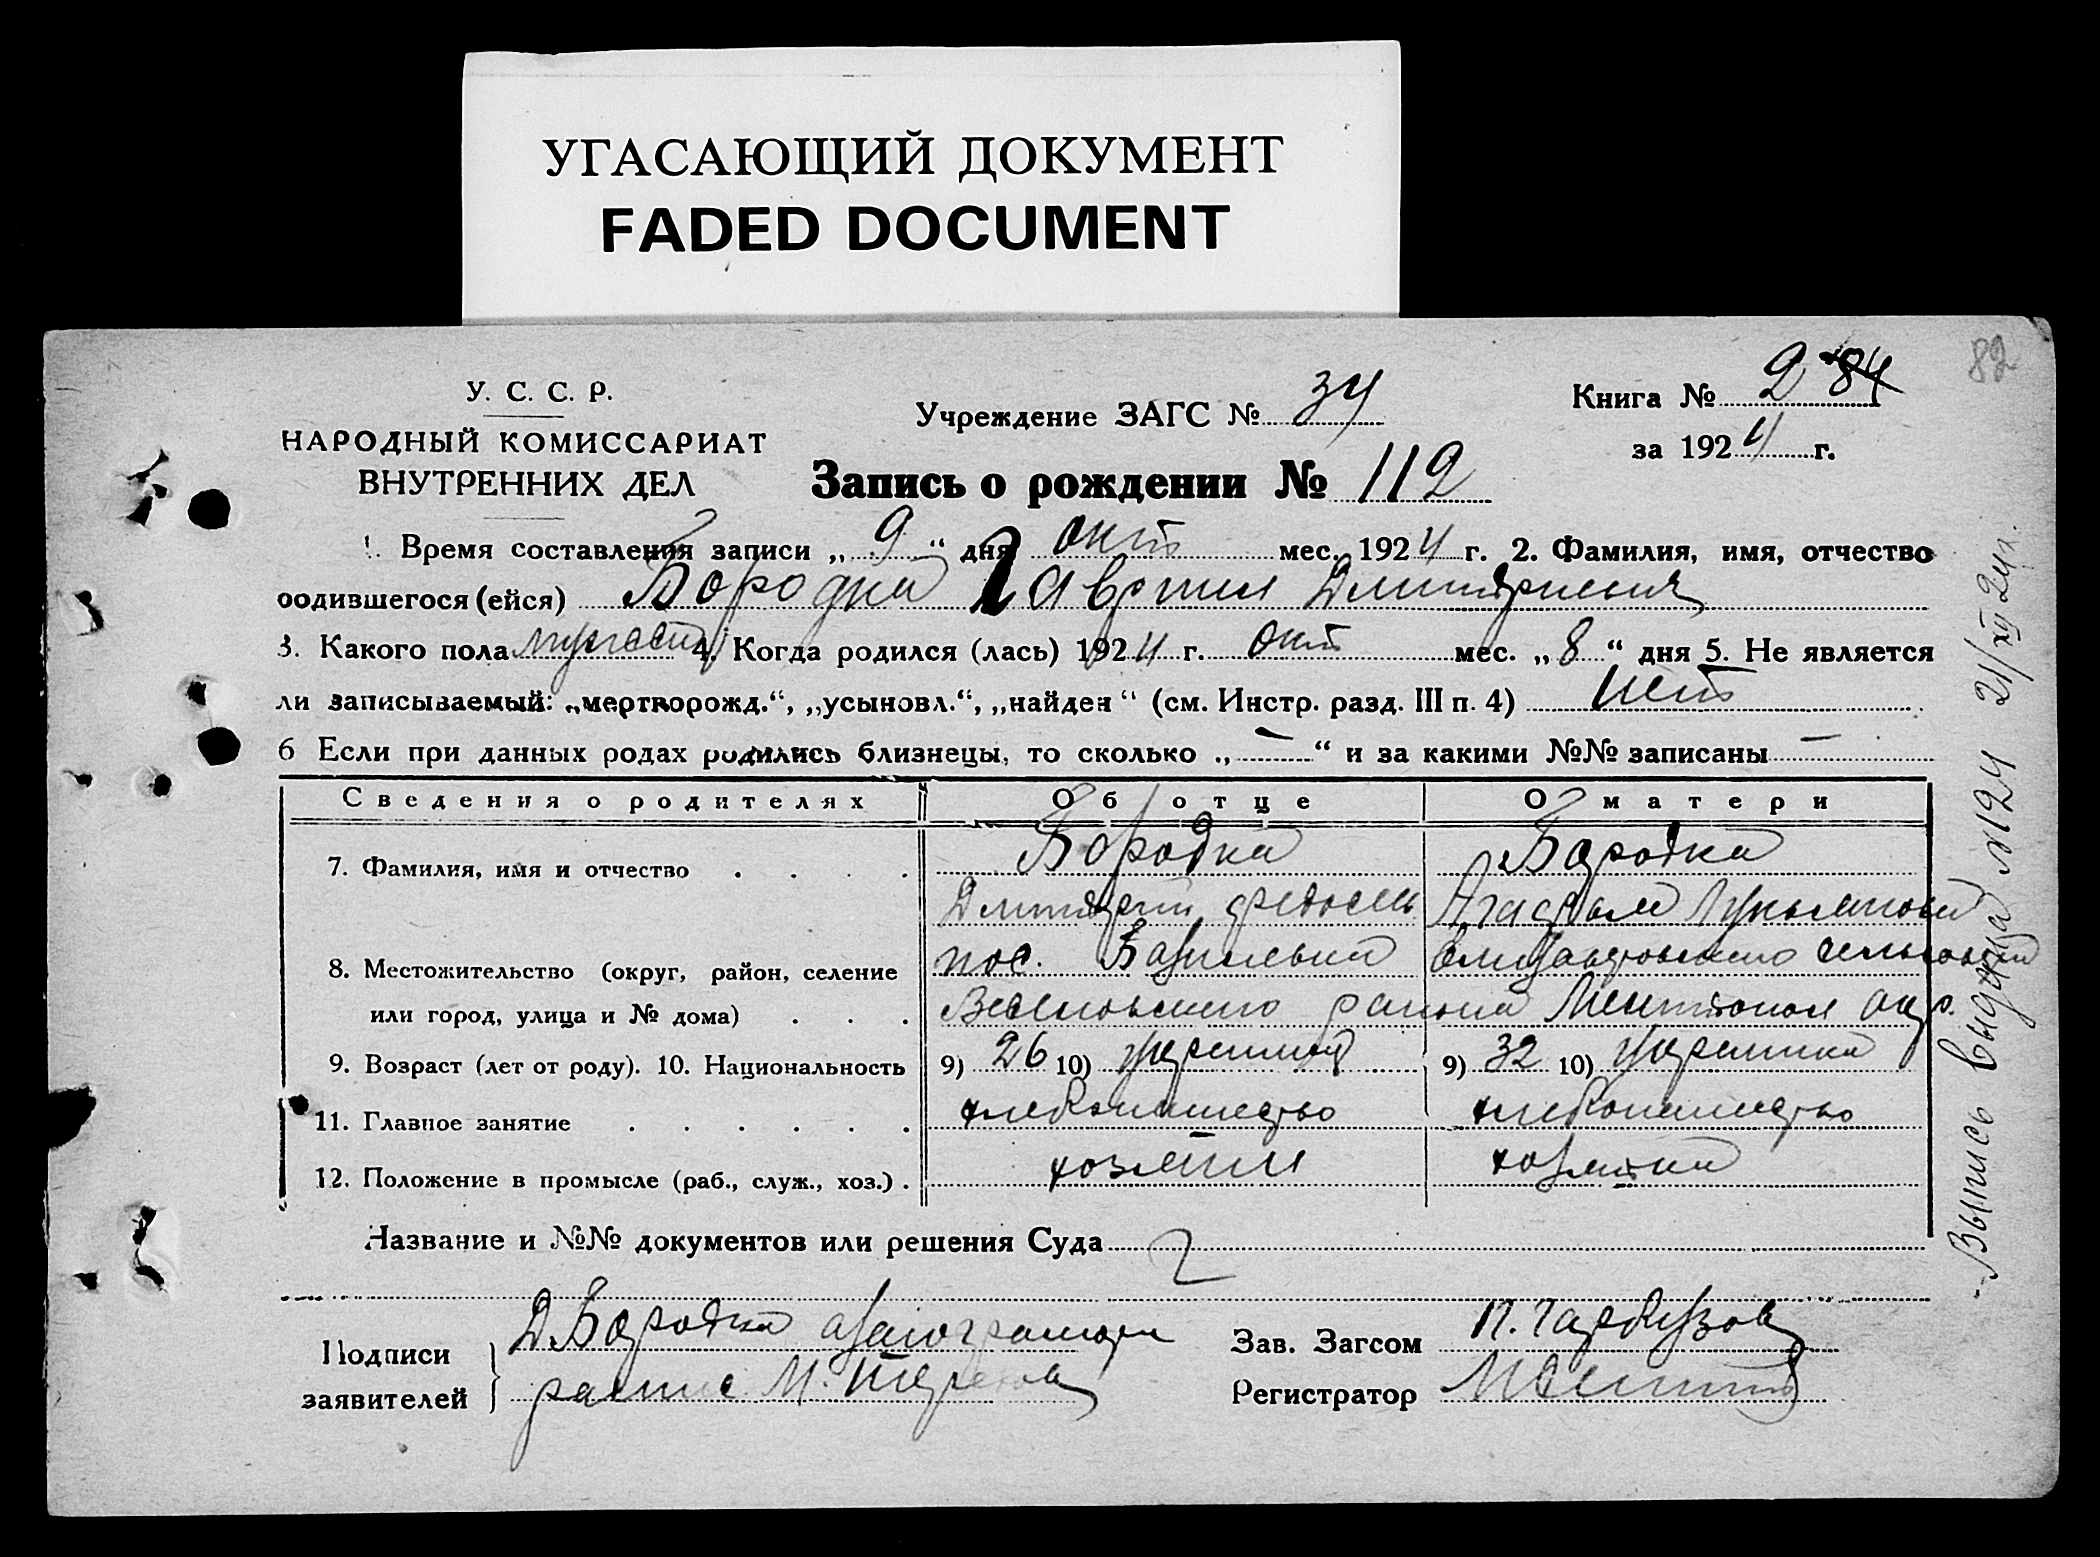 УГАСАЮЩИЙ ДОКУМЕНТ
FADED DOCUMENT
82
У. С. С. Р.
НАРОДНЫЙ КОМИССАРИАТ
ВНУТРЕННИХ ДЕЛ
Учреждение ЗАГС № 34
Книга № 2 84
за 1924 г.
Запись о рождении № 112
1. Время составления записи „ 9 “ дня окт мес. 1924 г. 2. Фамилия, имя, отчество
родившегося (ейся) Бородка Гавриил Дмитриевич
3. Какого пола мужеск 4. Когда родился (лась) 1924 г. окт мес. „ 8 “ дня 5. Не является
ли записываемый: „мертворожд.“, „усыновл.“, „найден“ (см. Инстр. разд. III п. 4) нет
6 Если при данных родах родились близнецы, то сколько „ — “ и за какими №№ записаны —
Сведения о родителях Об отце О матери
7. Фамилия, имя и отчество Бородка Бородка
Дмитрий Агафья
8. Местожительство (округ, район, селение пос. сельсовета
или город, улица и № дома) района окр.
9. Возраст (лет от роду). 10. Национальность 9) 26 10) украинец 9) 32 10) украинка
11. Главное занятие хлебопашество хлебопашество
12. Положение в промысле (раб., служ., хоз.) хозяин хозяйка
Название и №№ документов или решения Суда
Подписи заявителей
Д Бородка
М.
Зав. Загсом П. Гарбузов
Регистратор
Выпись выдана №124 21/XII 24 г.